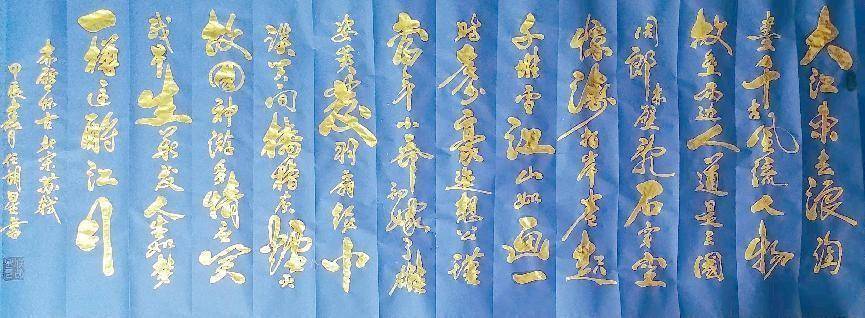 大江东去浪淘
尽千古风流人物
故垒西边人道是三国
周郎赤壁乱石穿空
惊涛拍岸卷起
千堆雪江山如画一
时多豪遥想公瑾
当年小乔初嫁了雄
姿英发羽扇纶巾
谈笑间樯橹灰烟
故国神游多情应笑
我早生华发人生如梦
一樽还酹江月
赤壁怀古北宋苏轼
甲辰月任胡星书